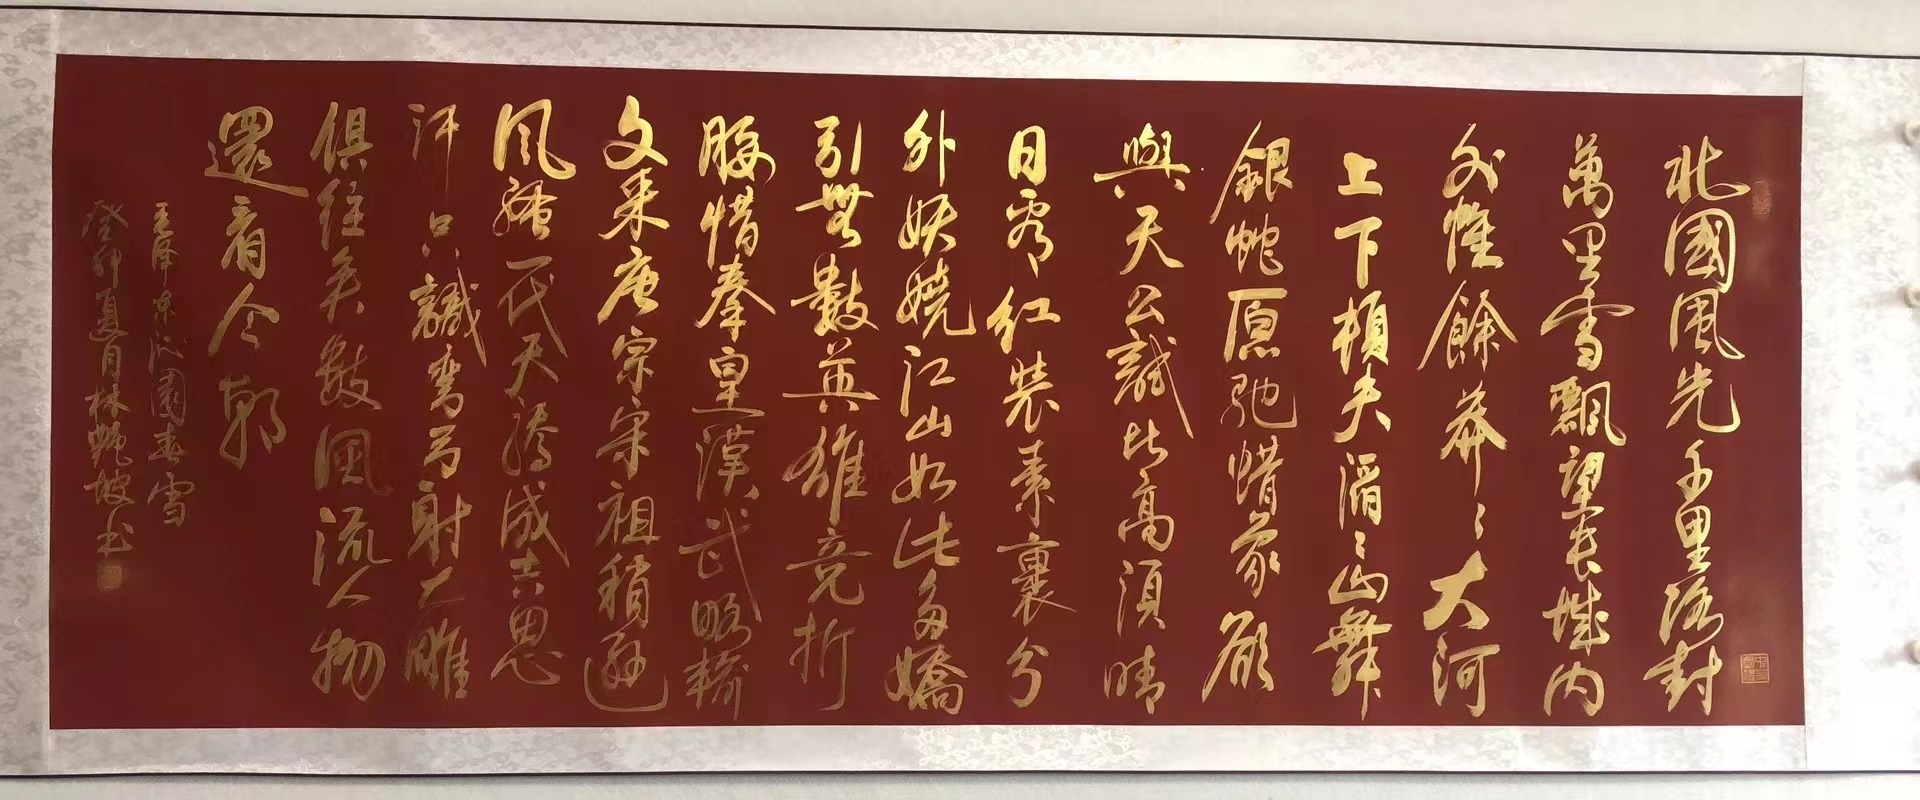 北國風光千里冰封
萬里雪飄望長城内
外惟餘莽々大河
上下頓失滔々山舞
銀蛇原馳蜡象欲
與天公試比高須晴
日看紅裝素裹分
外妖嬈江山如此多嬌
引無數英雄競折
腰惜秦皇漢武略輸
文采唐宗宋祖稍遜
風騷一代天驕成吉思
汗只識彎弓射大雕
俱往矣數風流人物
還看今朝
毛澤東沁園春雪
癸卯夏月林艷坡书